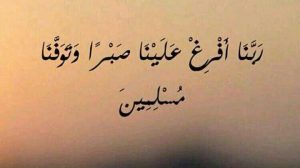 رَبَّنَا أَفْرِغْ عَلَيْنَا صَبْرًا وَتَوَفَّنَا
مُسْلِمِينَ